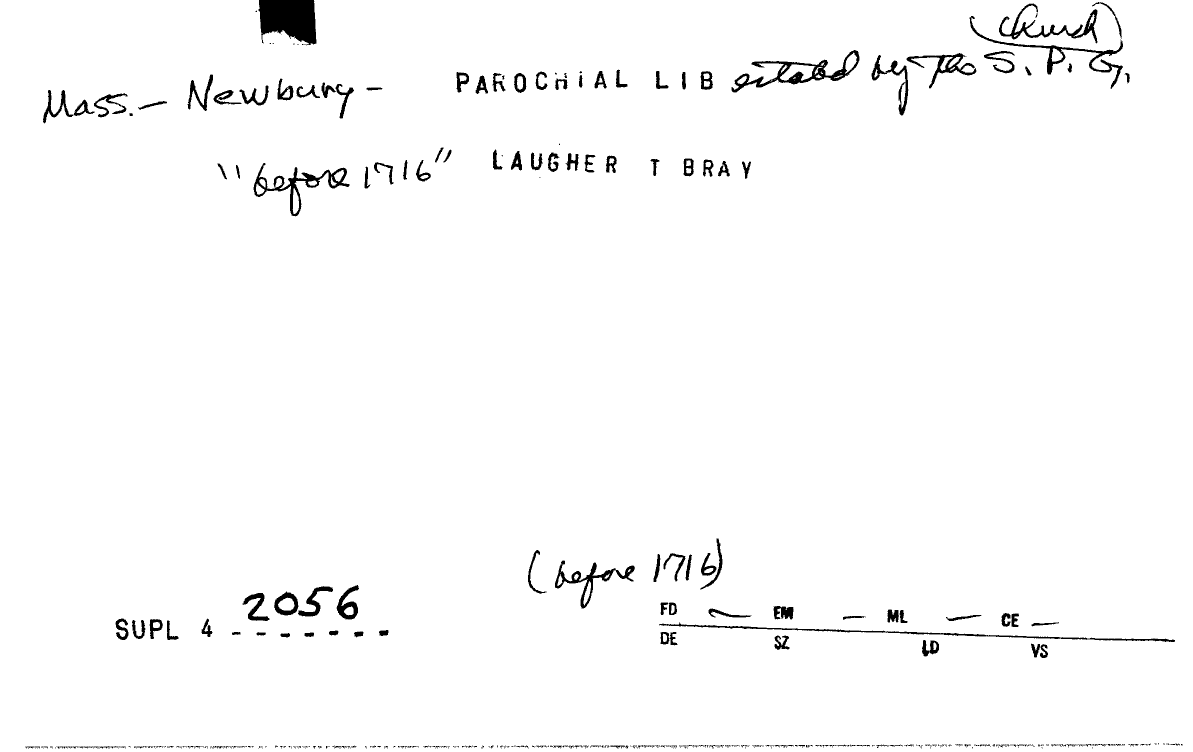 church
Mass. – Newbury – PAROCHIAL LIB estabd by the S. P. G.
"before 1716" LAUGHER T BRAY
(before 1716)
SUPL 4 2056
FD – EM – ML – CE –
DE SZ LD VS